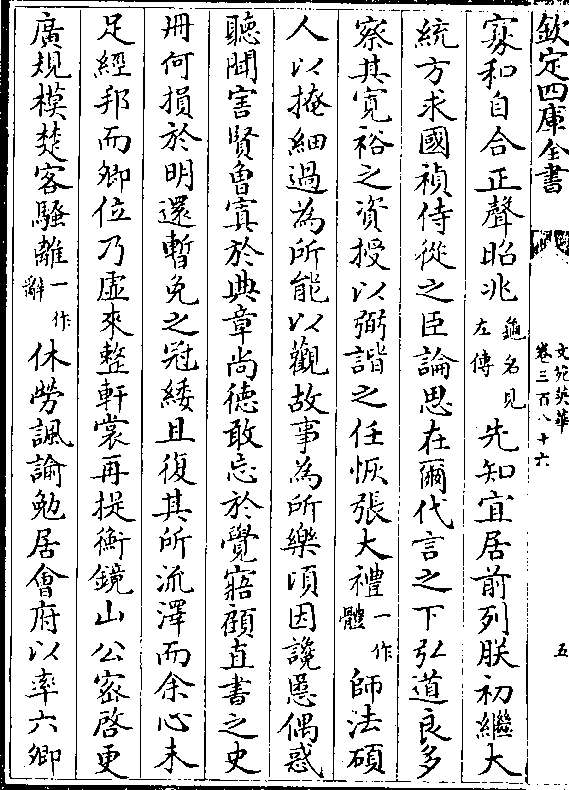 欽定四庫全書
文苑英華
卷三百八十六
五
寡和自合正聲昭兆龜名見左傳先知宜居前列朕初繼大
統方求國禎侍從之臣論思在爾代言之下弘道良多
察其寬裕之資授以弼諧之任恢張大禮一作體師法碩
人以掩細過為所能以觀故事為所樂頃因讒慝偶惑
聽聞害賢魯寘於典章尚德敢忘於覺寤顧直書之史
冊何損於明還暫免之冠緌且復其所流澤而余心未
足經邦而卿位乃虛來整軒裳再提衡鏡山公密啓更
廣規模楚客騷離一作辭休勞諷諭勉居會府以率六卿